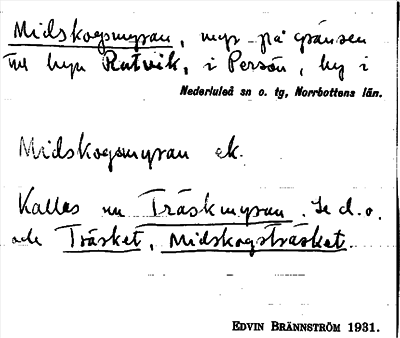 Midskogsmyran, myr på gränsen
till byn Rutvik, i Persön, by i
Nederluleå sn o. tg, Norrbottens län.
Midskogsmyran ek.
Kallas nu Träskmyran. Se d.o.
och Träsket, Midskogsträsket.
EDVIN BRÄNNSTRÖM 1931.